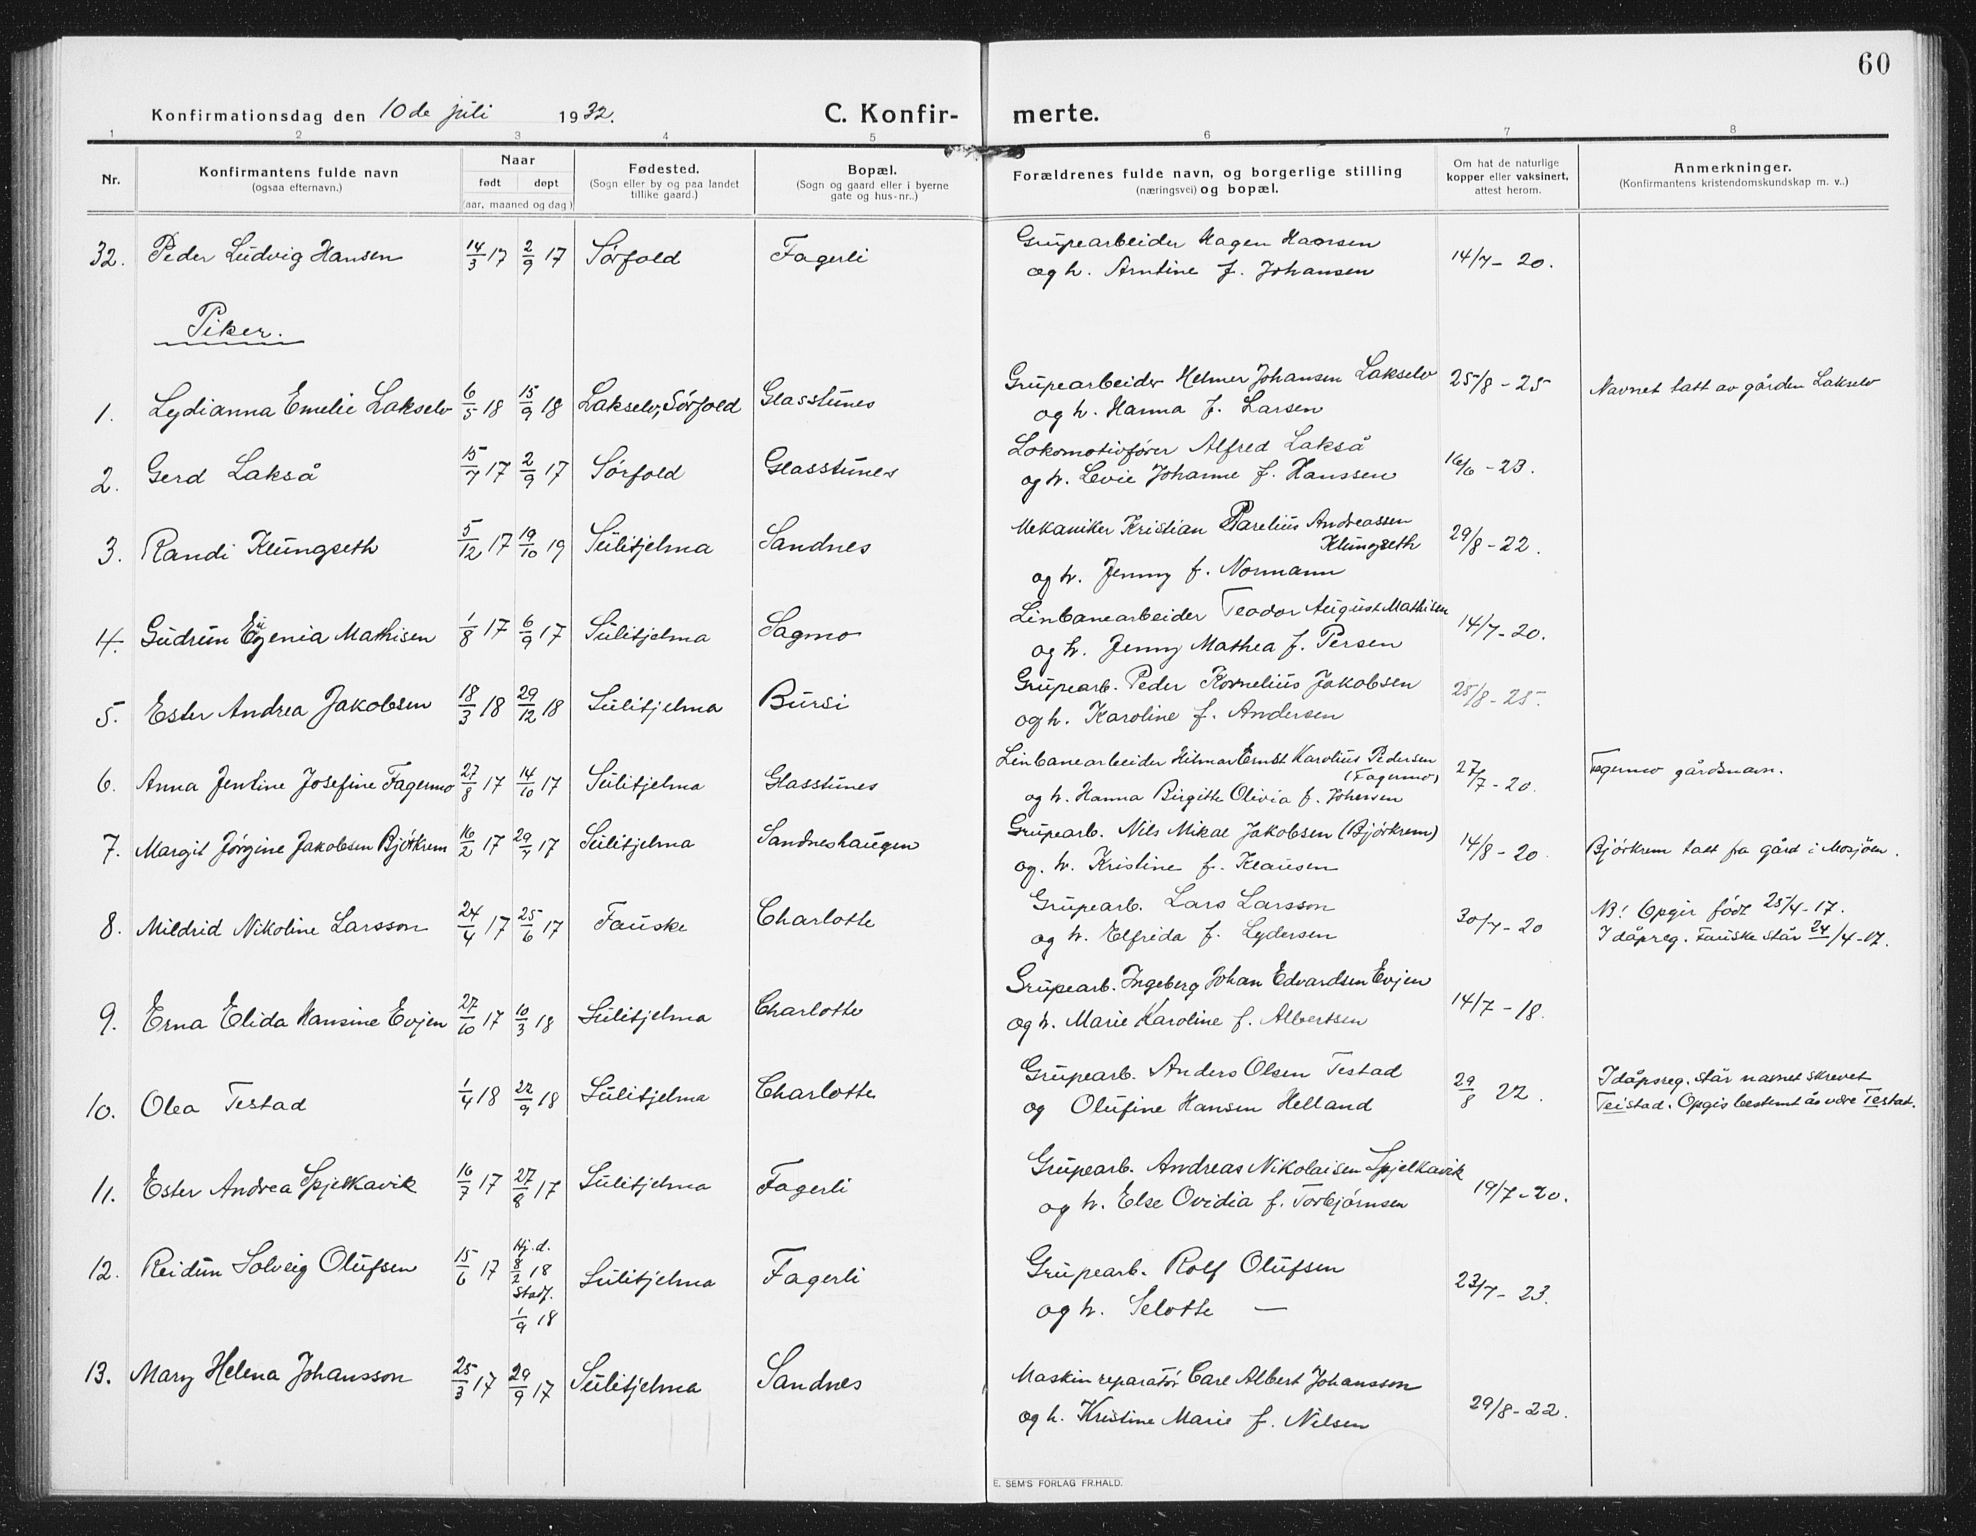 60
Konfirmationsdag den 10de juli 1932. C. Konfir- merte.
1 2 3 4 5 6 7 8
Nr. Konfirmantens fulde navn (ogsaa efternavn.) Naar født døpt (aar, maaned og dag) Fødested. (Sogn eller by og paa landet tillike gaard.) Bopæl. (Sogn og gaard eller i byerne gate og hus-nr..) Forældrenes fulde navn, og borgerlige stilling (næringsvei) og bopæl. Om hat de naturlige kopper eller vaksinert, attest herom. Anmerkninger. (Konfirmantens kristendomskundskap m. v..)
32. Peder Ludvig Hansen 14/3 17 2/9 17 Sørfold Fagerli Grupearbeider Hagen Hansen 14/7 - 20.
og h. Arntine f. Johansen
Piker.
1. Lydianna Emelie Lakselv 6/5 18 15/9 18 Lakselv, Sørfold Glasstunes Grupearbeider Helmer Johansen Lakselv 25/8 - 25 Navnet tatt av gården Lakselv
og h. Hanna f. Larsen
2. Gerd Lakså 15/7 17 2/9 17 Sørfold Glasstunes Lokomotivfører Alfred Lakså 16/6 - 23.
og h. Levie Johanne f. Hanssen
3. Randi Klungseth 5/12 17 19/10 19 Sulitjelma Sandnes Mekaniker Kristian Parelius Andreassen
Klungseth 29/8 - 22.
og h. Jenny f. Normann
4. Gudrun Eugenia Mathisen 1/8 17 6/9 17 Sulitjelma Sagmo Linbanearbeider Teodor August Mathisen 14/7 - 20.
og h. Jenny Mathea f. Persen
5. Ester Andrea Jakobsen 18/3 18 29/12 18 Sulitjelma Bursi Grupearb. Peder Kornelius Jakobsen 25/8 - 25.
og h. Karoline f. Andersen
6. Anna Jentine Josefine Fagermo 27/8 17 14/10 17 Sulitjelma Glasstunes Linbanearbeider Hilmar Ernst Karolius Pedersen
(Fagermo) 27/7 - 20. Fagermo gårdsnavn.
og h. Hanna Birgitte Olivia f. Johansen
7. Margit Jørgine Jakobsen Bjørkrem 16/2 17 29/7 17 Sulitjelma Sandneshaugen Grupearb. Nils Mikal Jakobsen (Bjørkrem) 14/8 - 20. Bjørkrem tatt fra gård i Mosjøen.
og h. Kristine f. Klausen
8. Mildrid Nikoline Larsson 24/4 17 25/6 17 Fauske Charlotte Grupearb. Lars Larsson 30/7 - 20 NB! Opgir født 25/4 - 17.
og h. Elfrida f. Lydersen I dåpsreg. Fauske står 24/4 - 17.
9. Erna Elida Hansine Evjen 27/10 17 10/3 18 Sulitjelma Charlotte Grupearb. Ingeberg Johan Edvardsen Evjen 14/7 - 18.
og h. Marie Karoline f. Albertsen
10. Olea Testad 1/4 18 22/9 18 Sulitjelma Charlotte Grupearb. Anders Olsen Testad 29/8 22. I dåpsreg. står navnet skrevet
og Olufine Hansen Helland Teistad. Opgis bestemt å være Testad.
11. Ester Andrea Spjelkavik 16/7 17 27/8 17 Sulitjelma Fagerli Grupearb. Andreas Nikolaisen Spjelkavik 19/7 - 20.
og h. Else Ovidia f. Torbjørnsen
12. Reidun Solveig Olufsen 15/6 17 Hj.d. 8/2 18 Stadf. 1/9 18 Sulitjelma Fagerli Grupearb. Rolf Olufsen 23/7 - 23.
og h. Selotte —
13. Mary Helena Johansson 25/3 17 29/9 17 Sulitjelma Sandnes Maskinreparatør Carl Albert Johansson 29/8 - 22.
og h. Kristine Marie f. Nilsen
E. SEM'S FORLAG FR.HALD.